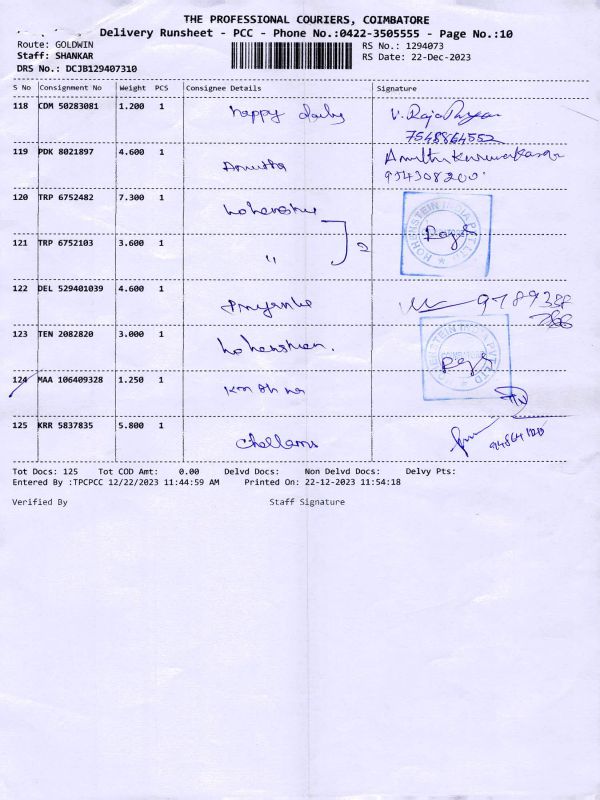 THE PROFESSIONAL COURIERS, COIMBATORE
Delivery Runsheet - PCC - Phone No.:0422-3505555 - Page No.:10
Route: GOLDWIN
RS No.: 1294073
Staff: SHANKAR
RS Date: 22-Dec-2023
DRS No.: DCJB129407310
S No Consignment No Weight PCS Consignee Details Signature
118 CDM 50283081 1.200 1 happy
7548864552
119 PDK 8021897 4.600 1 Amutha
120 TRP 6752482 7.300 1
HOHENSTEIN INDIA PVT LTD
121 TRP 6752103 3.600 1 " 2
122 DEL 529401039 4.600 1
123 TEN 2082820 3.000 1
124 MAA 106409328 1.250 1
125 KRR 5837835 5.800 1
Tot Docs: 125 Tot COD Amt: 0.00 Delvd Docs: Non Delvd Docs: Delvy Pts:
Entered By :TPCPCC 12/22/2023 11:44:59 AM Printed On: 22-12-2023 11:54:18
Verified By Staff Signature